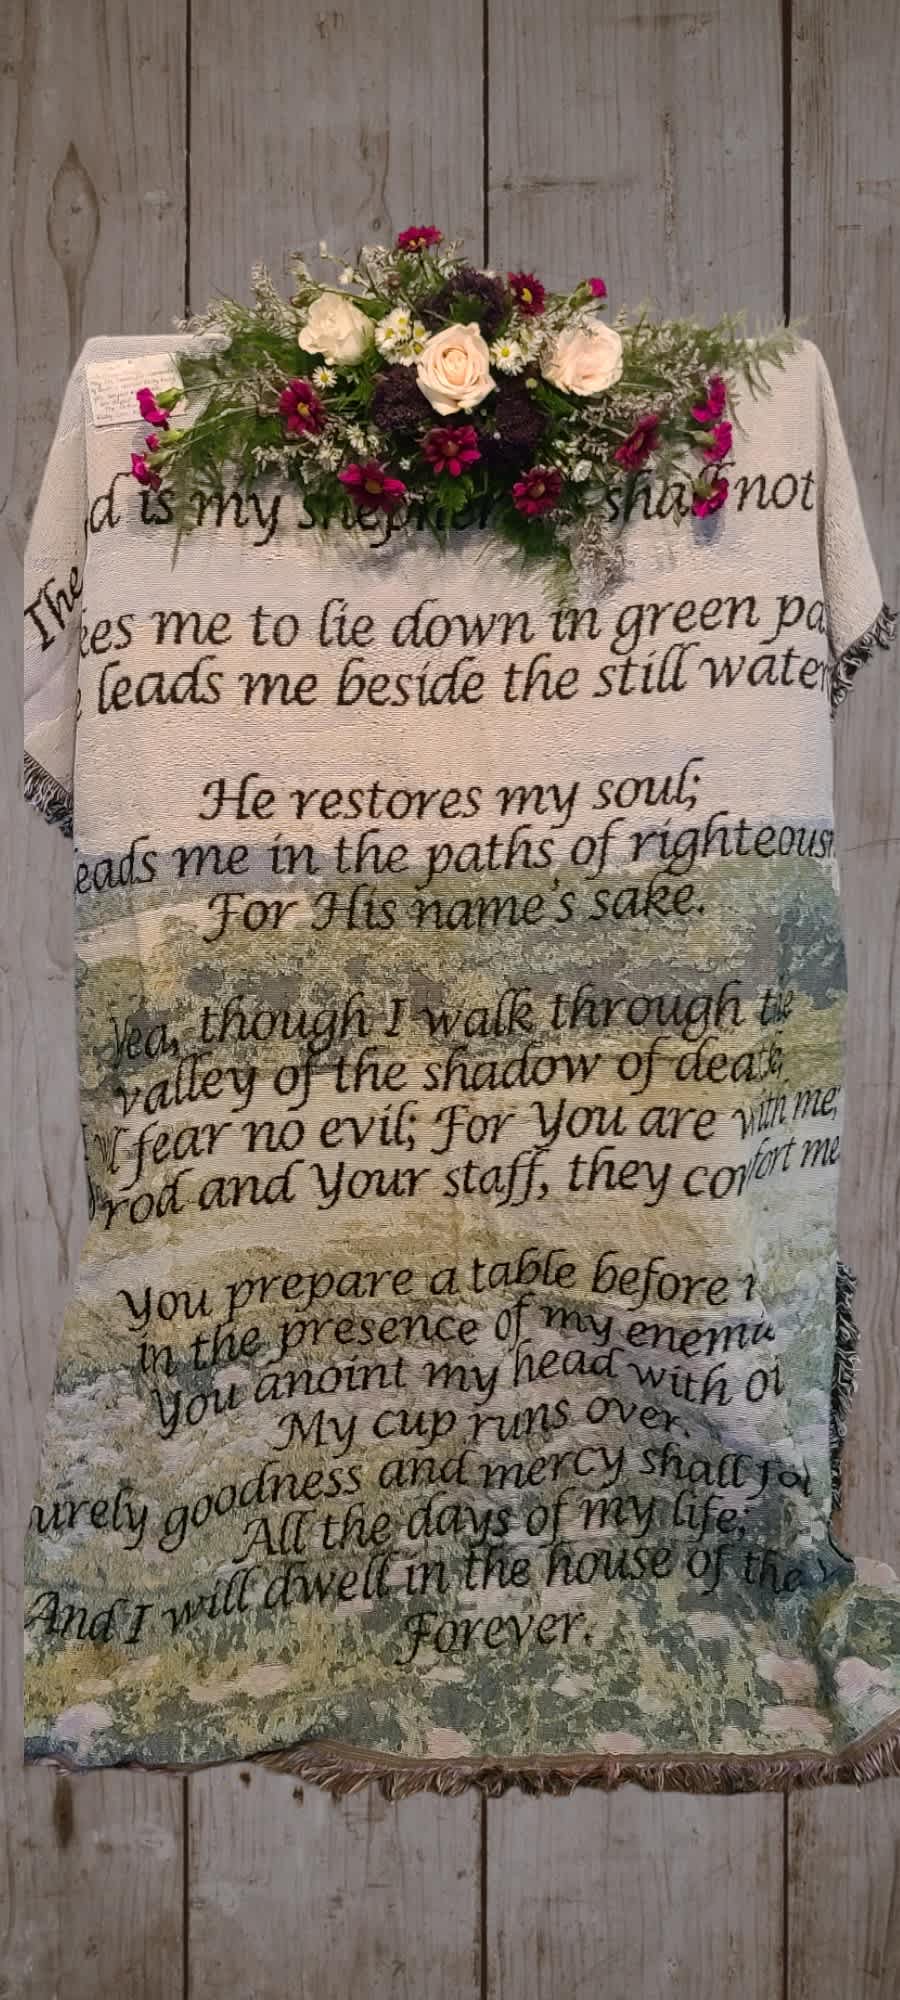 The
d is my shepher shall not
kes me to lie down in green pa
leads me beside the still water
He restores my soul;
eads me in the paths of righteous
For His name's sake.
Yea, though I walk through the
valley of the shadow of death;
fear no evil; For You are with me;
rod and Your staff, they comfort me
You prepare a table before
in the presence of my enemie
You anoint my head with oi
My cup runs over.
urely goodness and mercy shall fol
All the days of my life;
And I will dwell in the house of the
Forever.